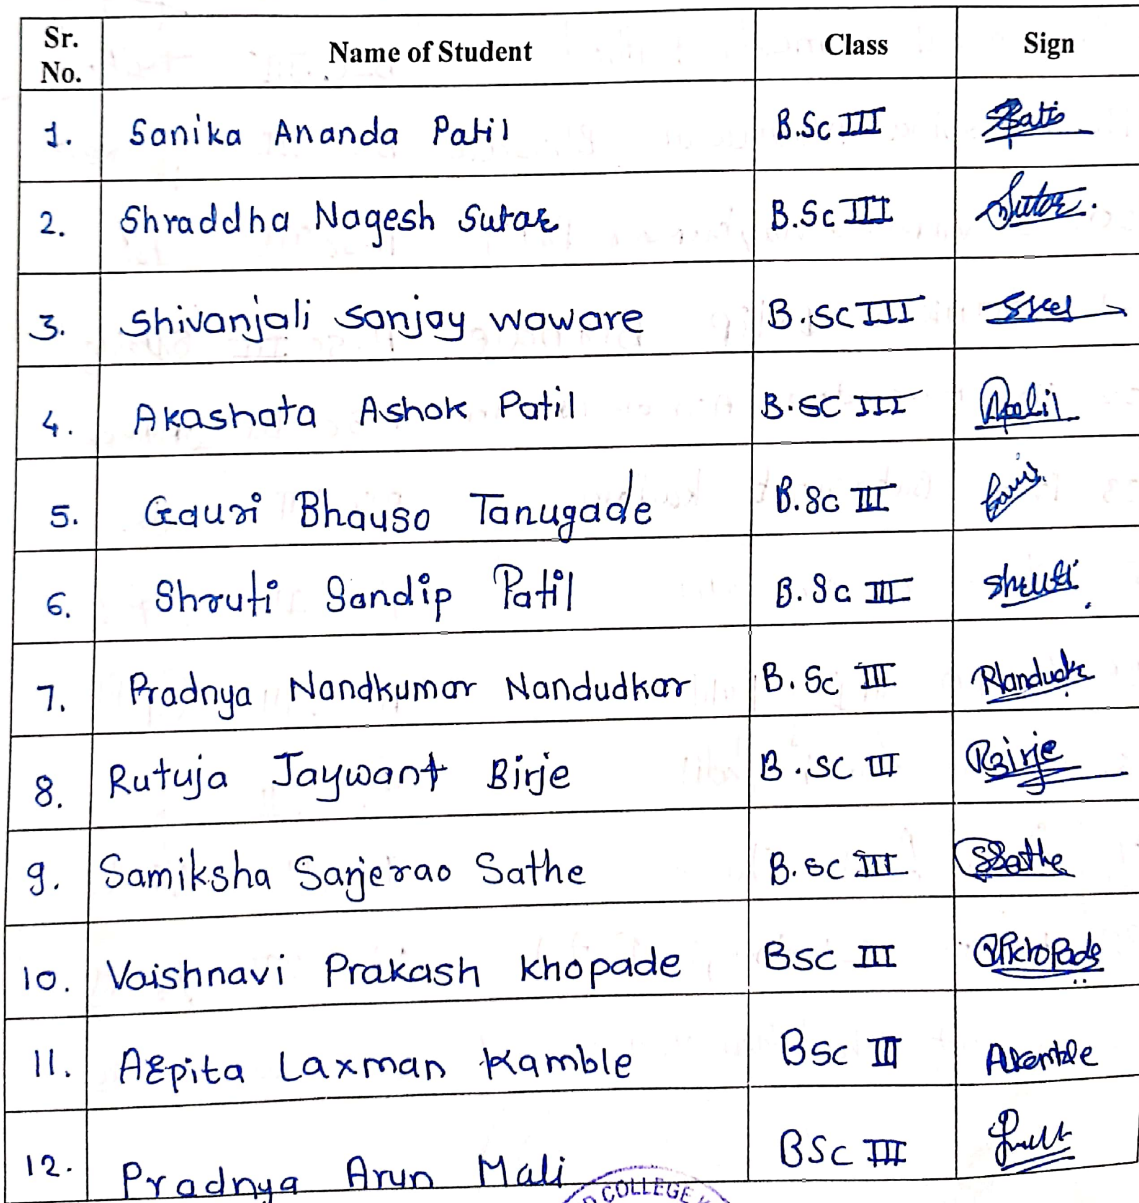 Sr. No. Name of Student Class Sign
1. Sanika Ananda Patil B.Sc III
2. Shraddha Nagesh Sutar B.Sc III Sutar.
3. Shivanjali Sanjay Waware B.SC III
4. Akashata Ashok Patil B.SC III Apatil
5. Gauri Bhauso Tanugade B.Sc III
6. Shruti Sandip Patil B.Sc III Shruti
7. Pradnya Nandkumar Nandudkar B.Sc III
8. Rutuja Jaywant Birje B.SC III RBirje
9. Samiksha Sarjerao Sathe B.SC III SSathe
10. Vaishnavi Prakash Khopade BSC III
11. Arpita Laxman Kamble BSC III AKamble
12. Pradnya Arun Mali BSC III
COLLEGE